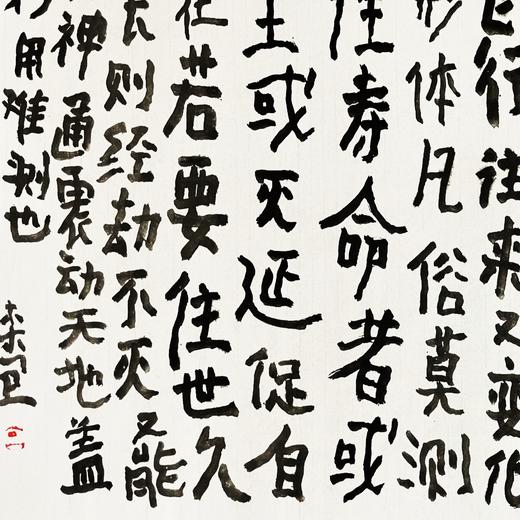 飞行往来又变化
形体凡俗莫测
住寿命者或
生或灭延促自
在若要住世久
长则经劫不灭又能
神通震动天地盖
用难测也